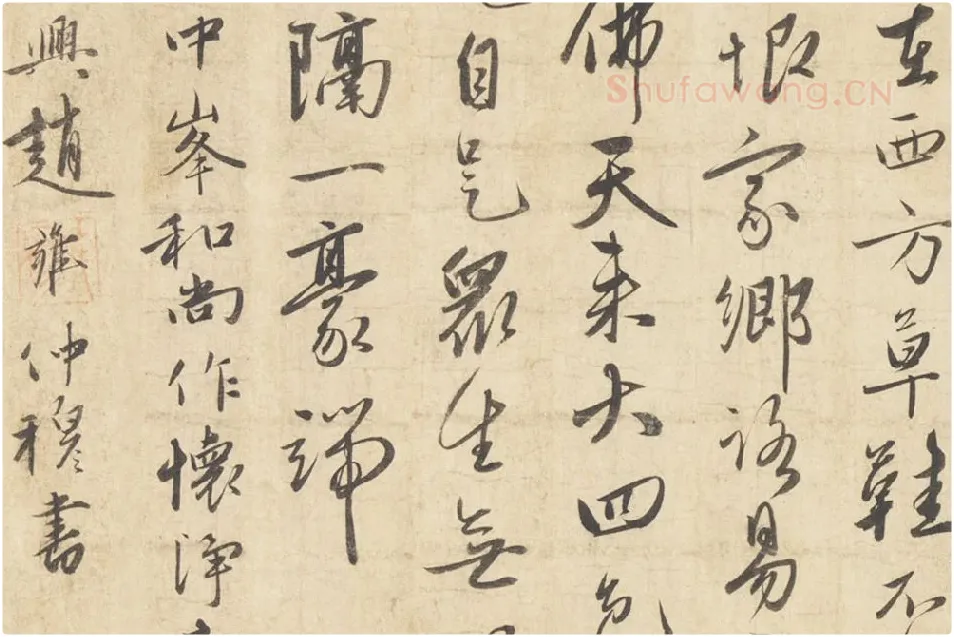 在西方草鞋不
恨家鄉路易
佛天未大四
自是眾生無
隔一豪端
中峯和尚作懷淨
興趙雍仲穆書
Shufawang.CN